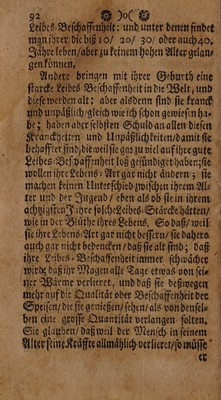 92 )o(
Leibes-Beschaffenheit: und unter denen findet
man ihrer/ die biß 10/ 20/ 30/ oder auch 40.
Jahre leben/ aber zu keinem hohen Alter gelan-
gen können.
Andere bringen mit ihrer Geburth eine
starcke Leibes Beschaffenheit in die Welt/ und
diese werden alt: aber alsdenn sind sie kranck
und unpäßlich/ gleich wie ich schon gewiesen ha-
be; haben aber selbsten Schuld an allen diesen
Kranckheiten und Unpäßlichkeiten/ damit sie
behafftet sind/ die weil sie gar zu viel auf ihre gute
Leibes-Beschaffenheit loß gesündiget haben; sie
wollen ihre Lebens-Art gar nicht ändern; sie
machen keinen Unterschied zwischen ihrem Al-
ter und der Jugend/ eben als ob sie in ihrem
achtzigsten Jahre solche Leibes-Stärcke hätten/
wie in der Blüthe ihres Lebens. So daß/ weil
sie ihre Lebens-Art gar nicht bessern/ sie dahero
auch gar nicht bedencken/ daß sie alt sind; daß
ihre Leibes-Beschaffenheit immer schwächer
wird; daß ihr Magen alle Tage etwas von sei-
ner Wärme verlieret/ und daß sie deßwegen
mehr auf die Qualität oder Beschaffenheit der
Speisen/ die sie geniessen/ sehen/ als von densel-
ben eine grosse Quantität verlangen solten.
Sie glauben/ daß weil der Mensch in seinem
Alter seine Kräffte allmählich verlieret/ so müsse
er